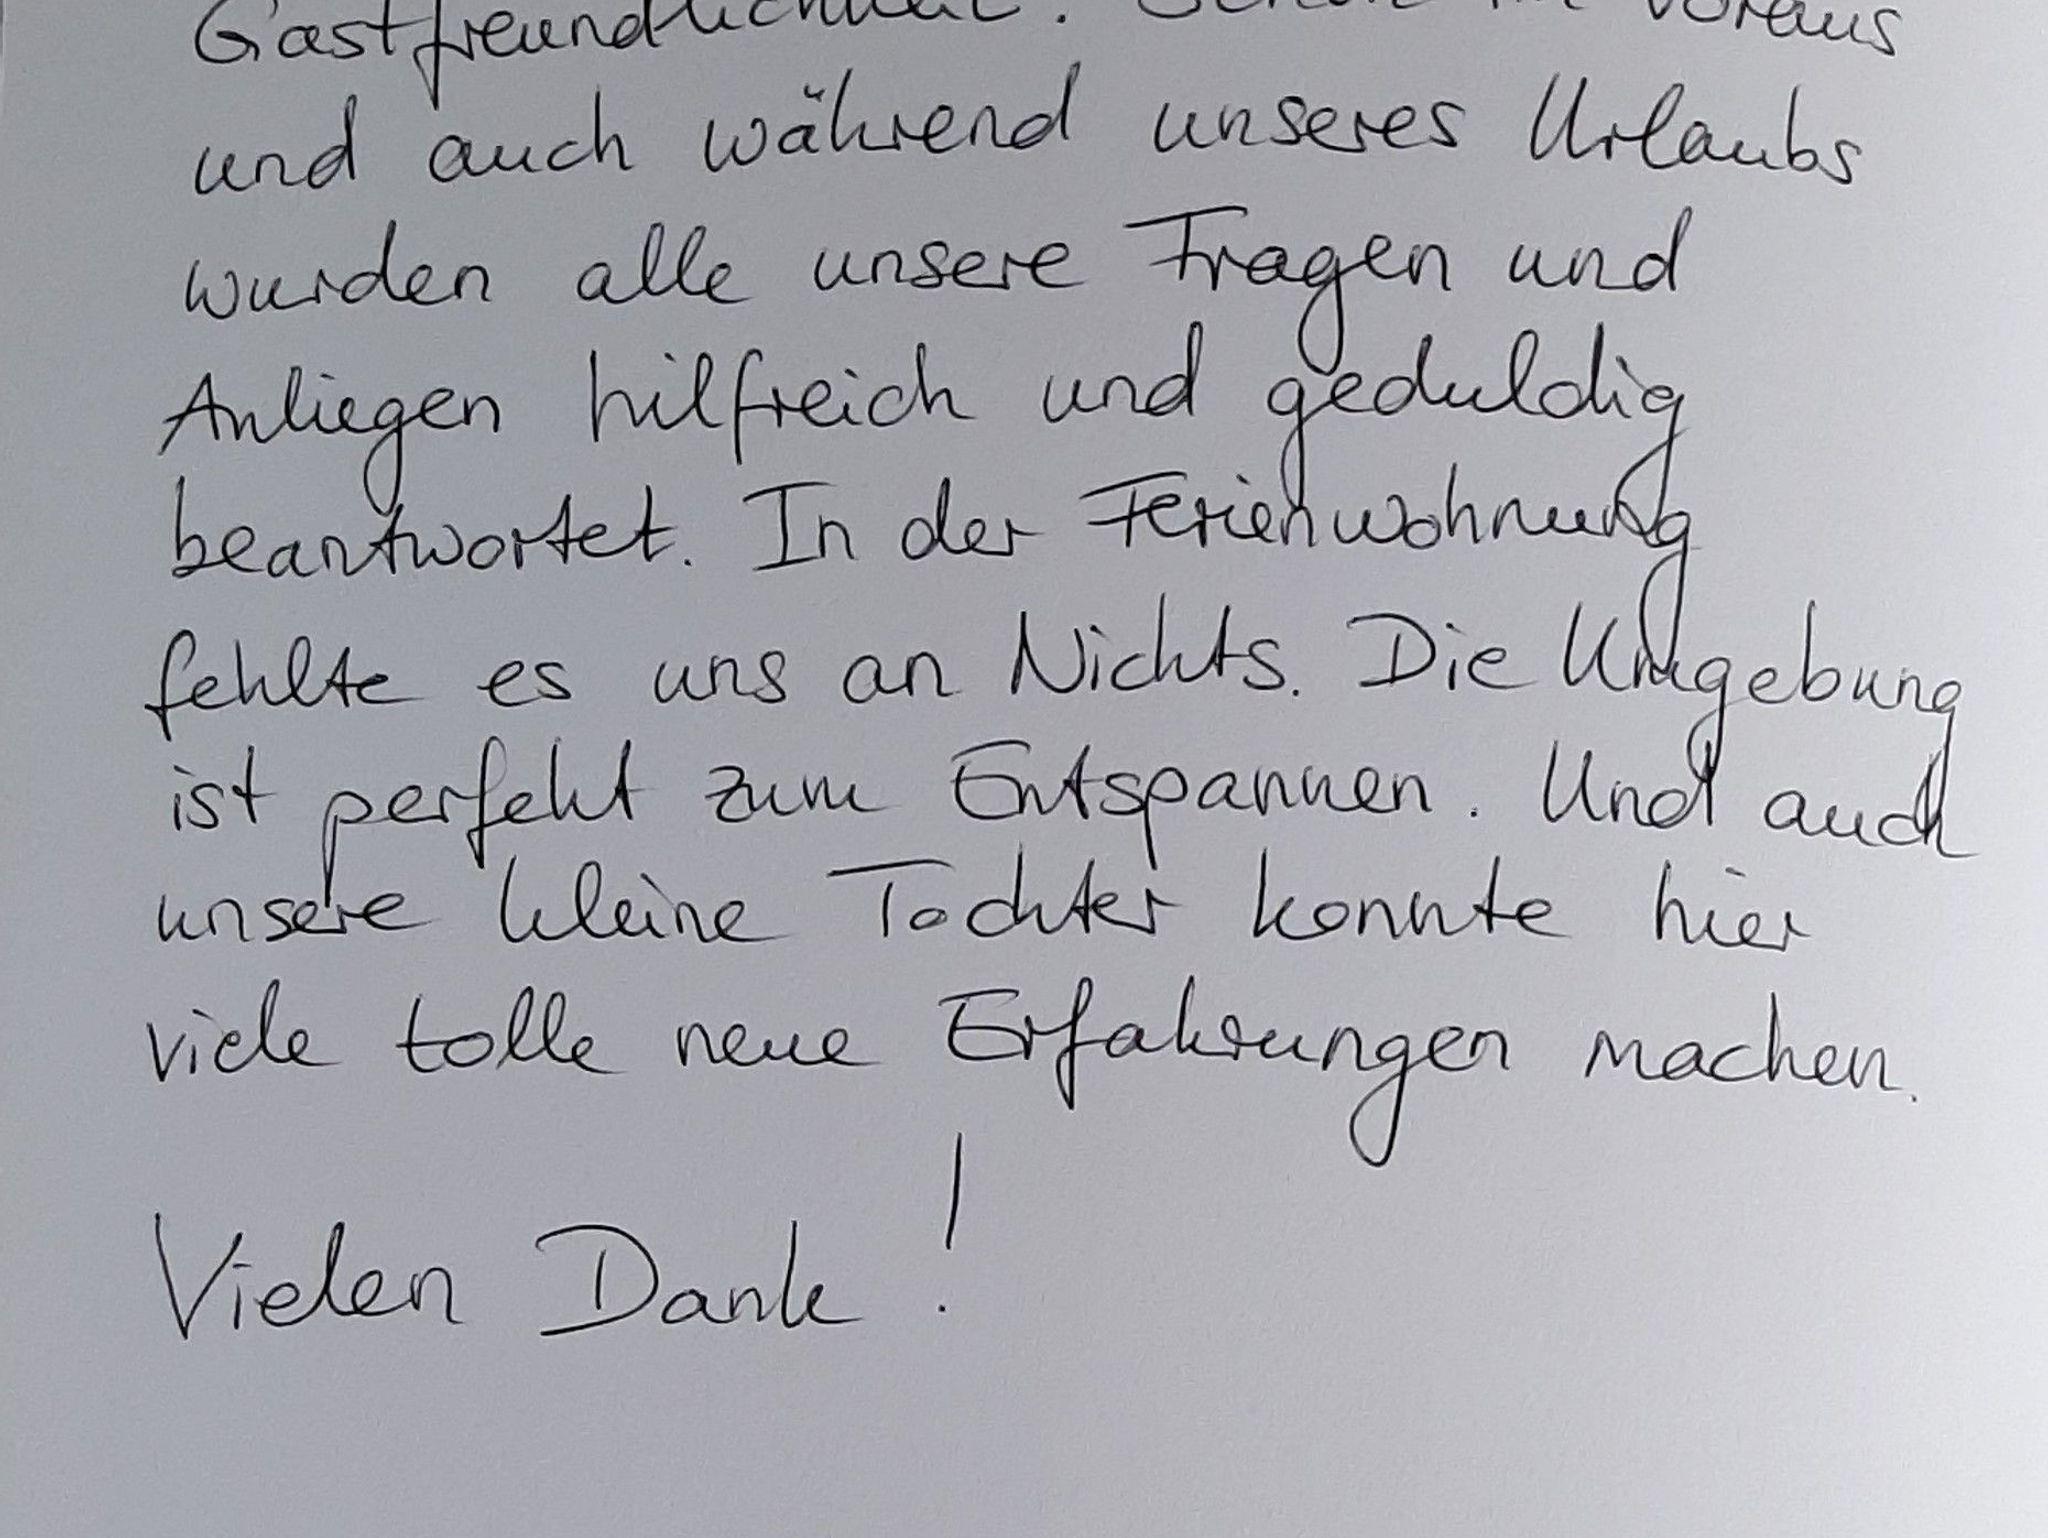 Gastfreundlichkeit. Schon im Voraus
und auch während unseres Urlaubs
wurden alle unsere Fragen und
Anliegen hilfreich und geduldig
beantwortet. In der Ferienwohnung
fehlte es uns an Nichts. Die Umgebung
ist perfekt zum Entspannen. Und auch
unsere kleine Tochter konnte hier
viele tolle neue Erfahrungen machen.
Vielen Dank!